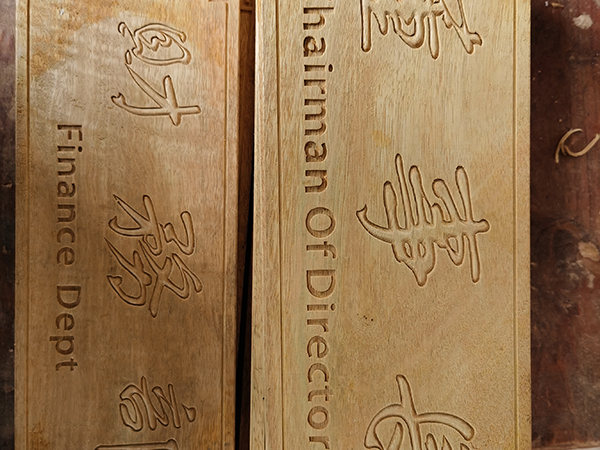 財務
Finance Dept
事
hairman Of Director